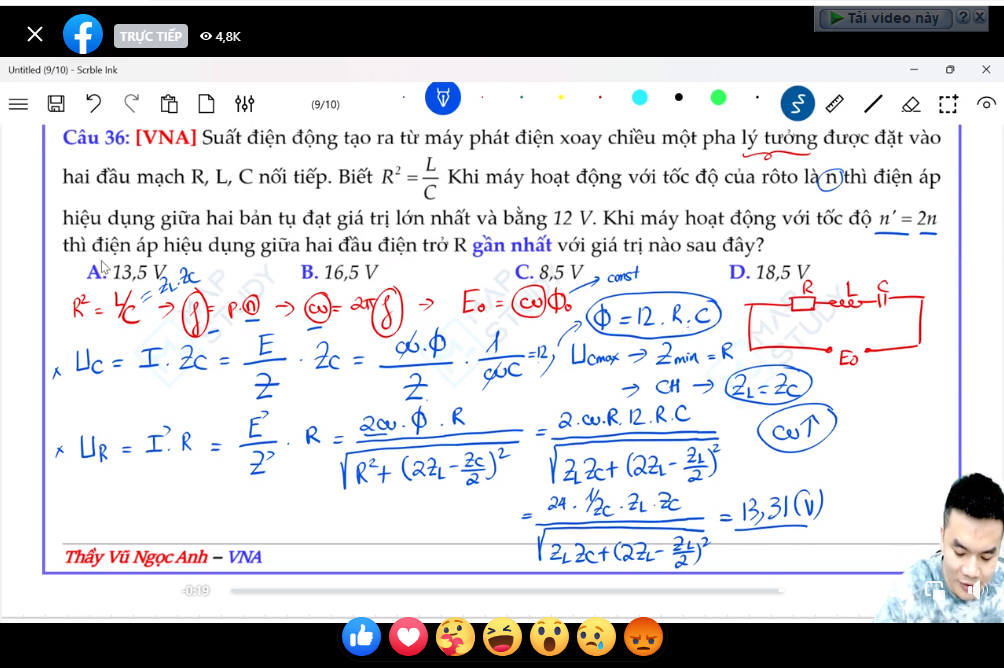 Tải video này
TRỰC TIẾP 4,8K
Untitled (9/10) - Scrble Ink
(9/10)
Câu 36: [VNA] Suất điện động tạo ra từ máy phát điện xoay chiều một pha lý tưởng được đặt vào
hai đầu mạch R, L, C nối tiếp. Biết R² = L/C Khi máy hoạt động với tốc độ của rôto là n thì điện áp
hiệu dụng giữa hai bản tụ đạt giá trị lớn nhất và bằng 12 V. Khi máy hoạt động với tốc độ n' = 2n
thì điện áp hiệu dụng giữa hai đầu điện trở R gần nhất với giá trị nào sau đây?
A. 13,5 V B. 16,5 V C. 8,5 V D. 18,5 V
R² = L/C = ZL.ZC → f = p.n → ω = 2π f → E₀ = ω Φ₀ → const
R L C
E₀
Φ = 12.R.C
x UC = I.ZC = E/Z . ZC = ω.Φ/Z . 1/ωC = 12, UCmax → Zmin = R
→ CH → ZL = ZC
ω↑
x UR = I'.R = E'/Z' . R = 2ω.Φ.R/√R²+(2ZL-ZC/2)² = 2.ω.R.12.R.C/√ZLZC+(2ZL-ZL/2)²
= 24.1/ZC.ZL.ZC/√ZLZC+(2ZL-ZL/2)² = 13,31(V)
Thầy Vũ Ngọc Anh – VNA
-0:19